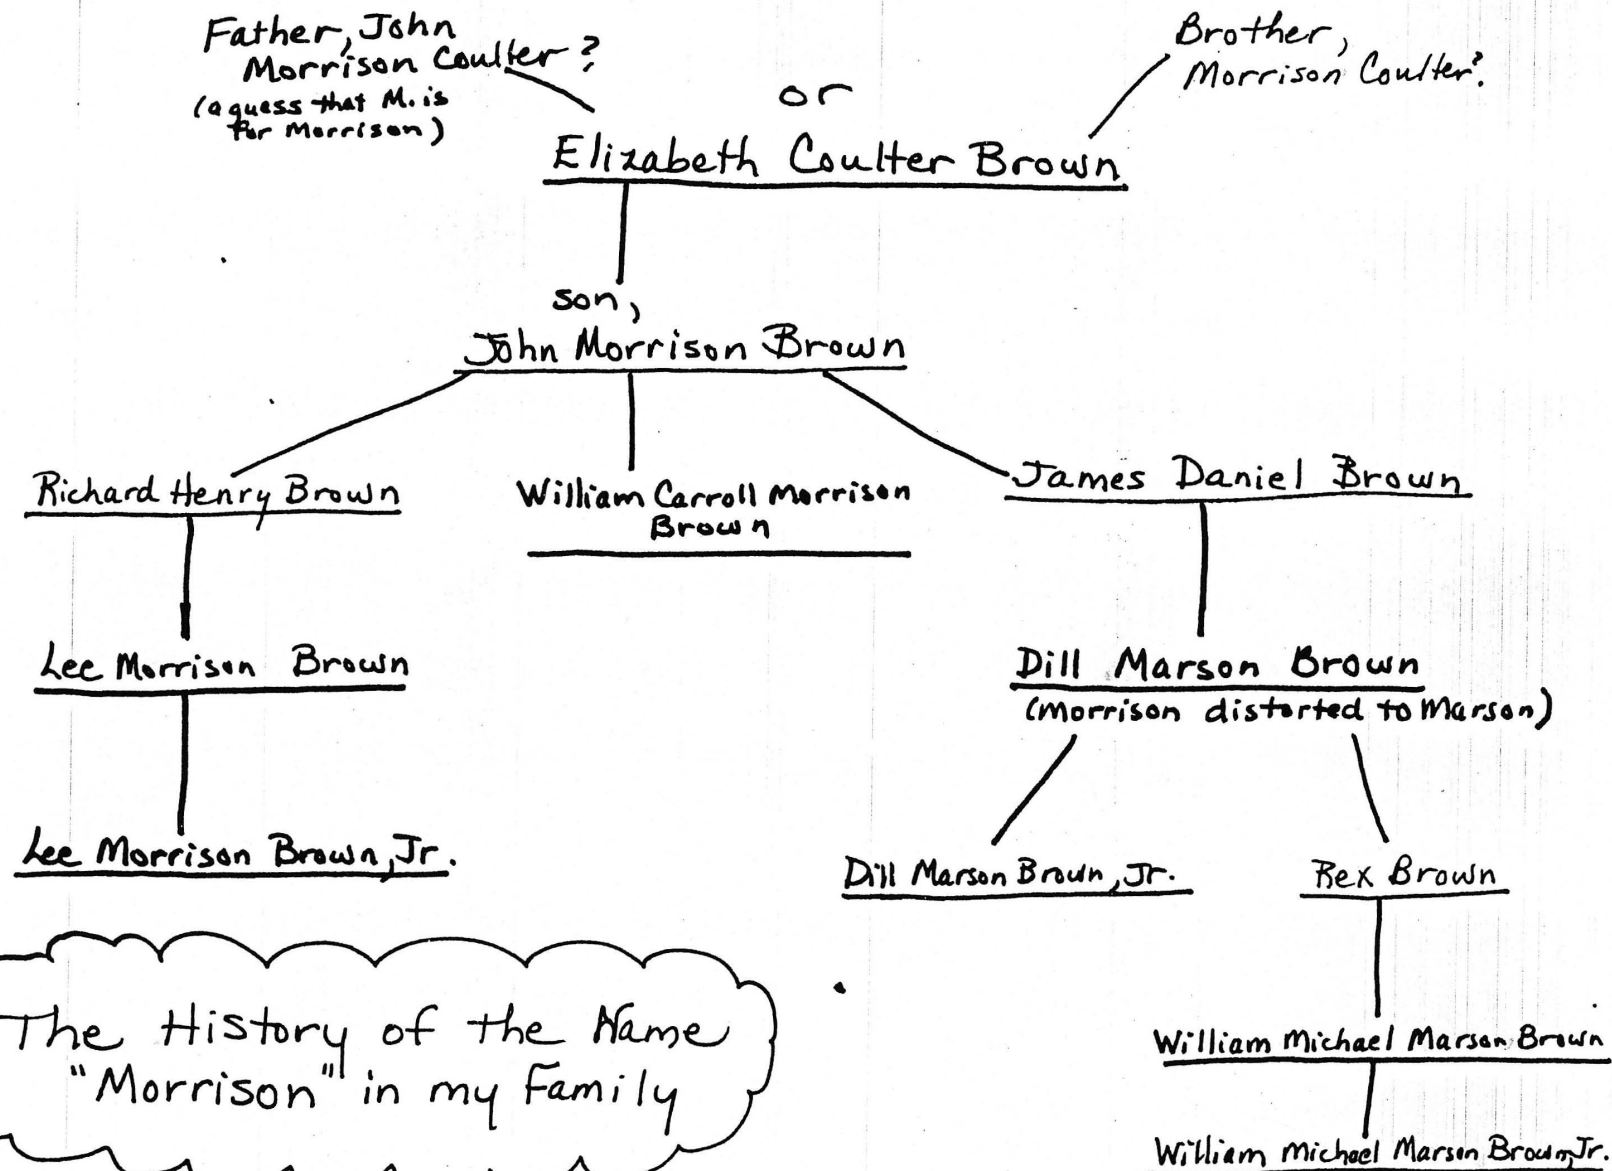 Father, John
Morrison Coulter?
(a guess that M. is
for Morrison)
or
Brother,
Morrison Coulter?
Elizabeth Coulter Brown
son,
John Morrison Brown
Richard Henry Brown
William Carroll Morrison
Brown
James Daniel Brown
Lee Morrison Brown
Dill Marson Brown
(Morrison distorted to Marson)
Lee Morrison Brown, Jr.
Dill Marson Brown, Jr.
Rex Brown
The History of the Name
"Morrison" in my Family
William Michael Marson Brown
William Michael Marson Brown, Jr.